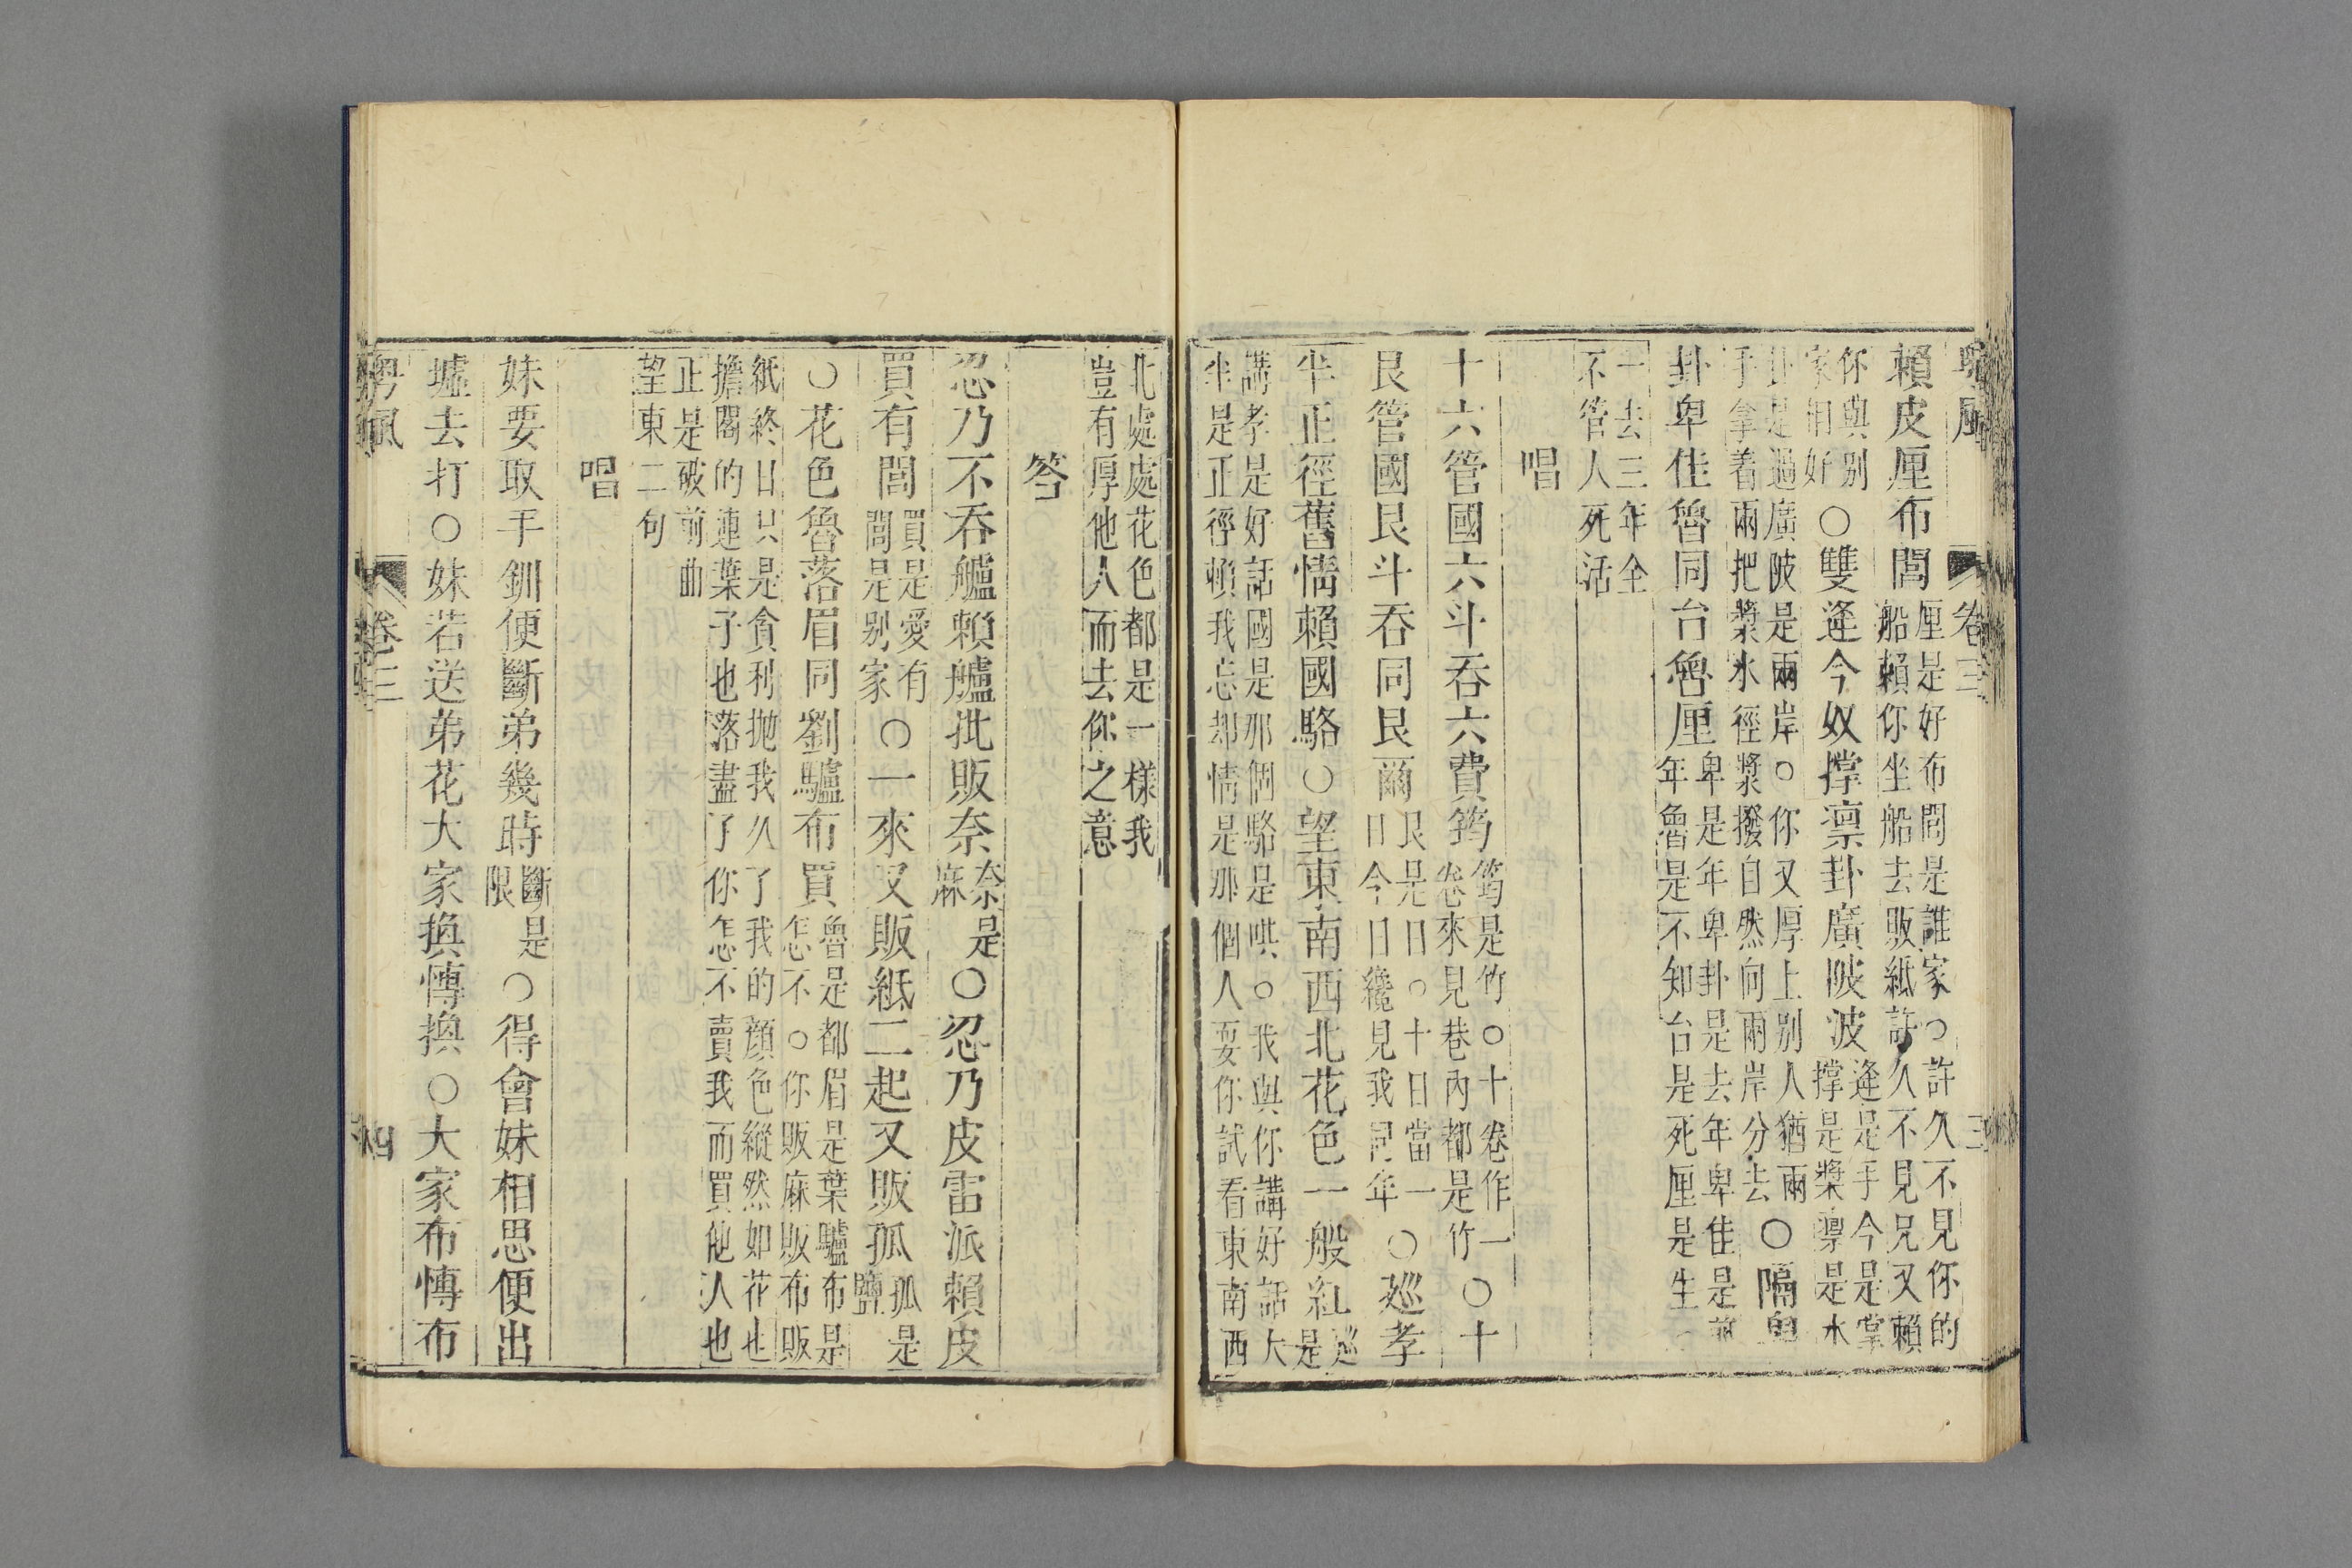 粵風 卷三 三
賴皮厘布閭厘是好布閭是誰家○許久不見你的
船賴你坐船去販紙許久不見兄又賴
你與别
家相好○雙逢今奴撑凛卦廣陂波逢是手今是掌
撑是槳凛是水
卦是過廣陂是兩岸○你又厚上别人猶兩
手拿着兩把槳水徑槳撥自然向兩岸分去○隔卑
卦卑隹魯同台魯厘卑是年卑卦是去年卑隹是前
年魯是不知台是死厘是生
一去三年全
不管人死活
唱
十六管國六斗吞六費筠筠是竹○十卷作一
卷來見巷內都是竹○十
艮管國艮斗吞同艮爾艮是日○十日當一
日今日纔見我同年○廵孝
半正徑舊情賴國駱○望東南西北花色一般紅廵
是
講孝是好話國是那個駱是哄○我與你講好話大
半是正徑賴我忘却情是那個人耍你試看東南西
北處處花色都是一樣我
豈有厚他人而去你之意
答
忍乃不吞艫賴艫批販奈奈是
麻○忍乃皮雷派賴皮
買有閭買是愛有
閭是别家○一來又販紙二起又販孤孤是
鹽
○花色魯落眉同劉驢布買魯是都眉是葉驢布是
怎不○你販麻販布販
紙終日只是貪利抛我久了我的顔色縱然如花也
擔閣的連葉子也落盡了你怎不賣我而買他人也
正是破前曲
望東二句
唱
妹要取手釧便斷弟幾時斷是
限○得會妹相思便出
墟去打○妹若送弟花大家換慱換○大家布慱布
粵風 卷三 四